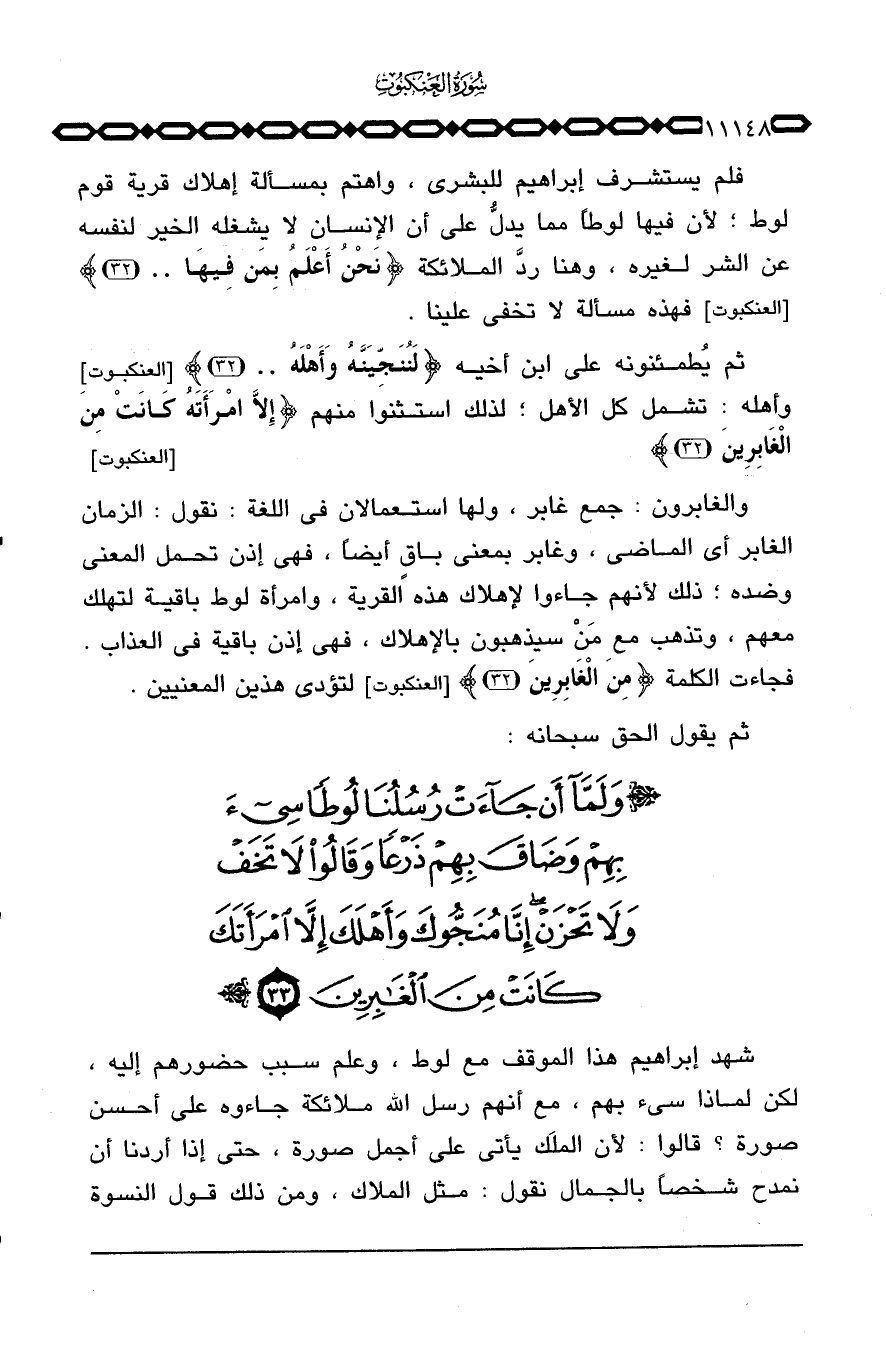 سُورَةُ العَنكَبُوتِ
١١١٤٨
فلم يستشرف إبراهيم للبشرى ، واهتم بمسألة إهلاك قرية قوم
لوط ؛ لأن فيها لوطاً مما يدلُّ على أن الإنسان لا يشغله الخير لنفسه
عن الشر لغيره ، وهنا ردَّ الملائكة ﴿ نَحْنُ أَعْلَمُ بِمَن فِيهَا .. (٣٢) ﴾
[العنكبوت] فهذه مسألة لا تخفى علينا .
ثم يُطمئنونه على ابن أخيه ﴿ لَنُنَجِّيَنَّهُ وَأَهْلَهُ .. (٣٢) ﴾ [العنكبوت]
وأهله : تشمل كل الأهل ؛ لذلك استثنوا منهم ﴿ إِلاَّ امْرَأَتَهُ كَانَتْ مِنَ
الْغَابِرِينَ (٣٢) ﴾ [العنكبوت]
والغابرون : جمع غابر ، ولها استعمالان فى اللغة : نقول : الزمان
الغابر أى الماضى ، وغابر بمعنى باقٍ أيضاً ، فهى إذن تحمل المعنى
وضده ؛ ذلك لأنهم جاءوا لإهلاك هذه القرية ، وامرأة لوط باقية لتهلك
معهم ، وتذهب مع مَنْ سيذهبون بالإهلاك ، فهى إذن باقية فى العذاب .
فجاءت الكلمة ﴿ مِنَ الْغَابِرِينَ (٣٢) ﴾ [العنكبوت] لتؤدى هذين المعنيين .
ثم يقول الحق سبحانه :
﴿ وَلَمَّآ أَن جَآءَتْ رُسُلُنَا لُوطًا سِىٓءَ
بِهِمْ وَضَاقَ بِهِمْ ذَرْعًا وَقَالُوا۟ لَا تَخَفْ
وَلَا تَحْزَنْ ۖ إِنَّا مُنَجُّوكَ وَأَهْلَكَ إِلَّا ٱمْرَأَتَكَ
كَانَتْ مِنَ ٱلْغَٰبِرِينَ ٣٣ ﴾
شهد إبراهيم هذا الموقف مع لوط ، وعلم سبب حضورهم إليه ،
لكن لماذا سىء بهم ، مع أنهم رسل الله ملائكة جاءوه على أحسن
صورة ؟ قالوا : لأن الملَك يأتى على أجمل صورة ، حتى إذا أردنا أن
نمدح شخصاً بالجمال نقول : مثل الملاك ، ومن ذلك قول النسوة